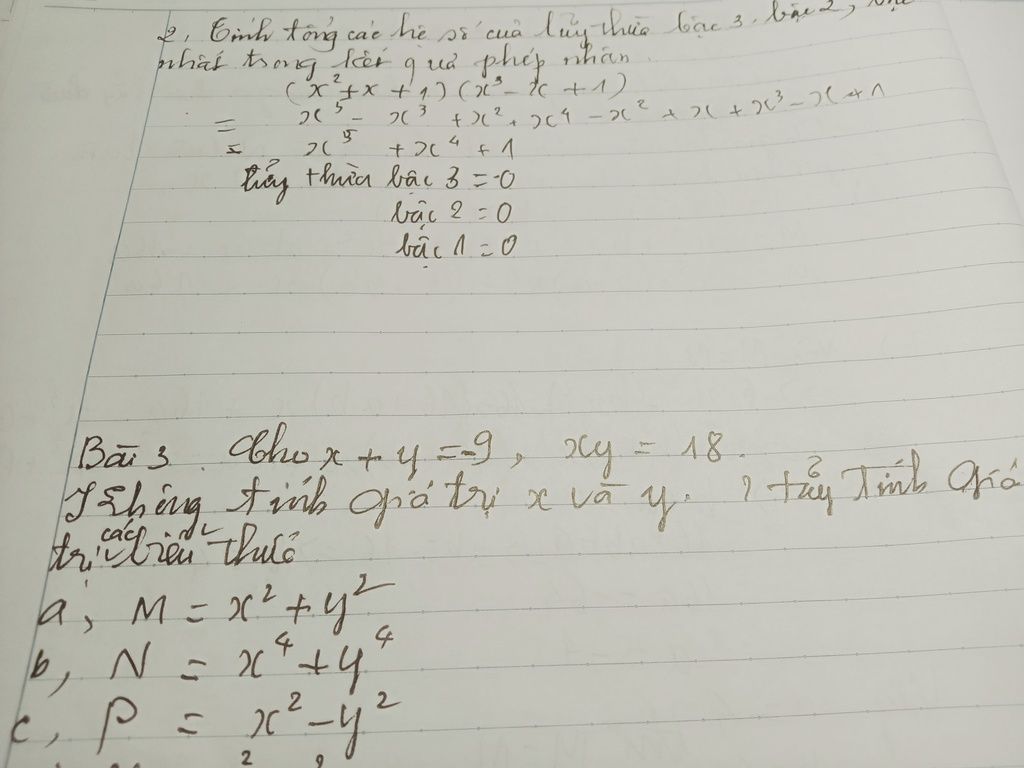 2, Tính tổng các hệ số của lũy thừa bậc 3, bậc 2,
nhất trong kết quả phép nhân
(x² + x + 1) (x³ - x + 1)
= x⁵ - x³ + x² + x⁴ - x² + x + x³ - x + 1
= x⁵ + x⁴ + 1
lũy thừa bậc 3 = 0
bậc 2 = 0
bậc 1 = 0
Bài 3. Cho x + y = -9, xy = 18.
Không tính giá trị x và y. Tính giá
trị các biểu thức
a, M = x² + y²
b, N = x⁴ + y⁴
c, P = x² - y²